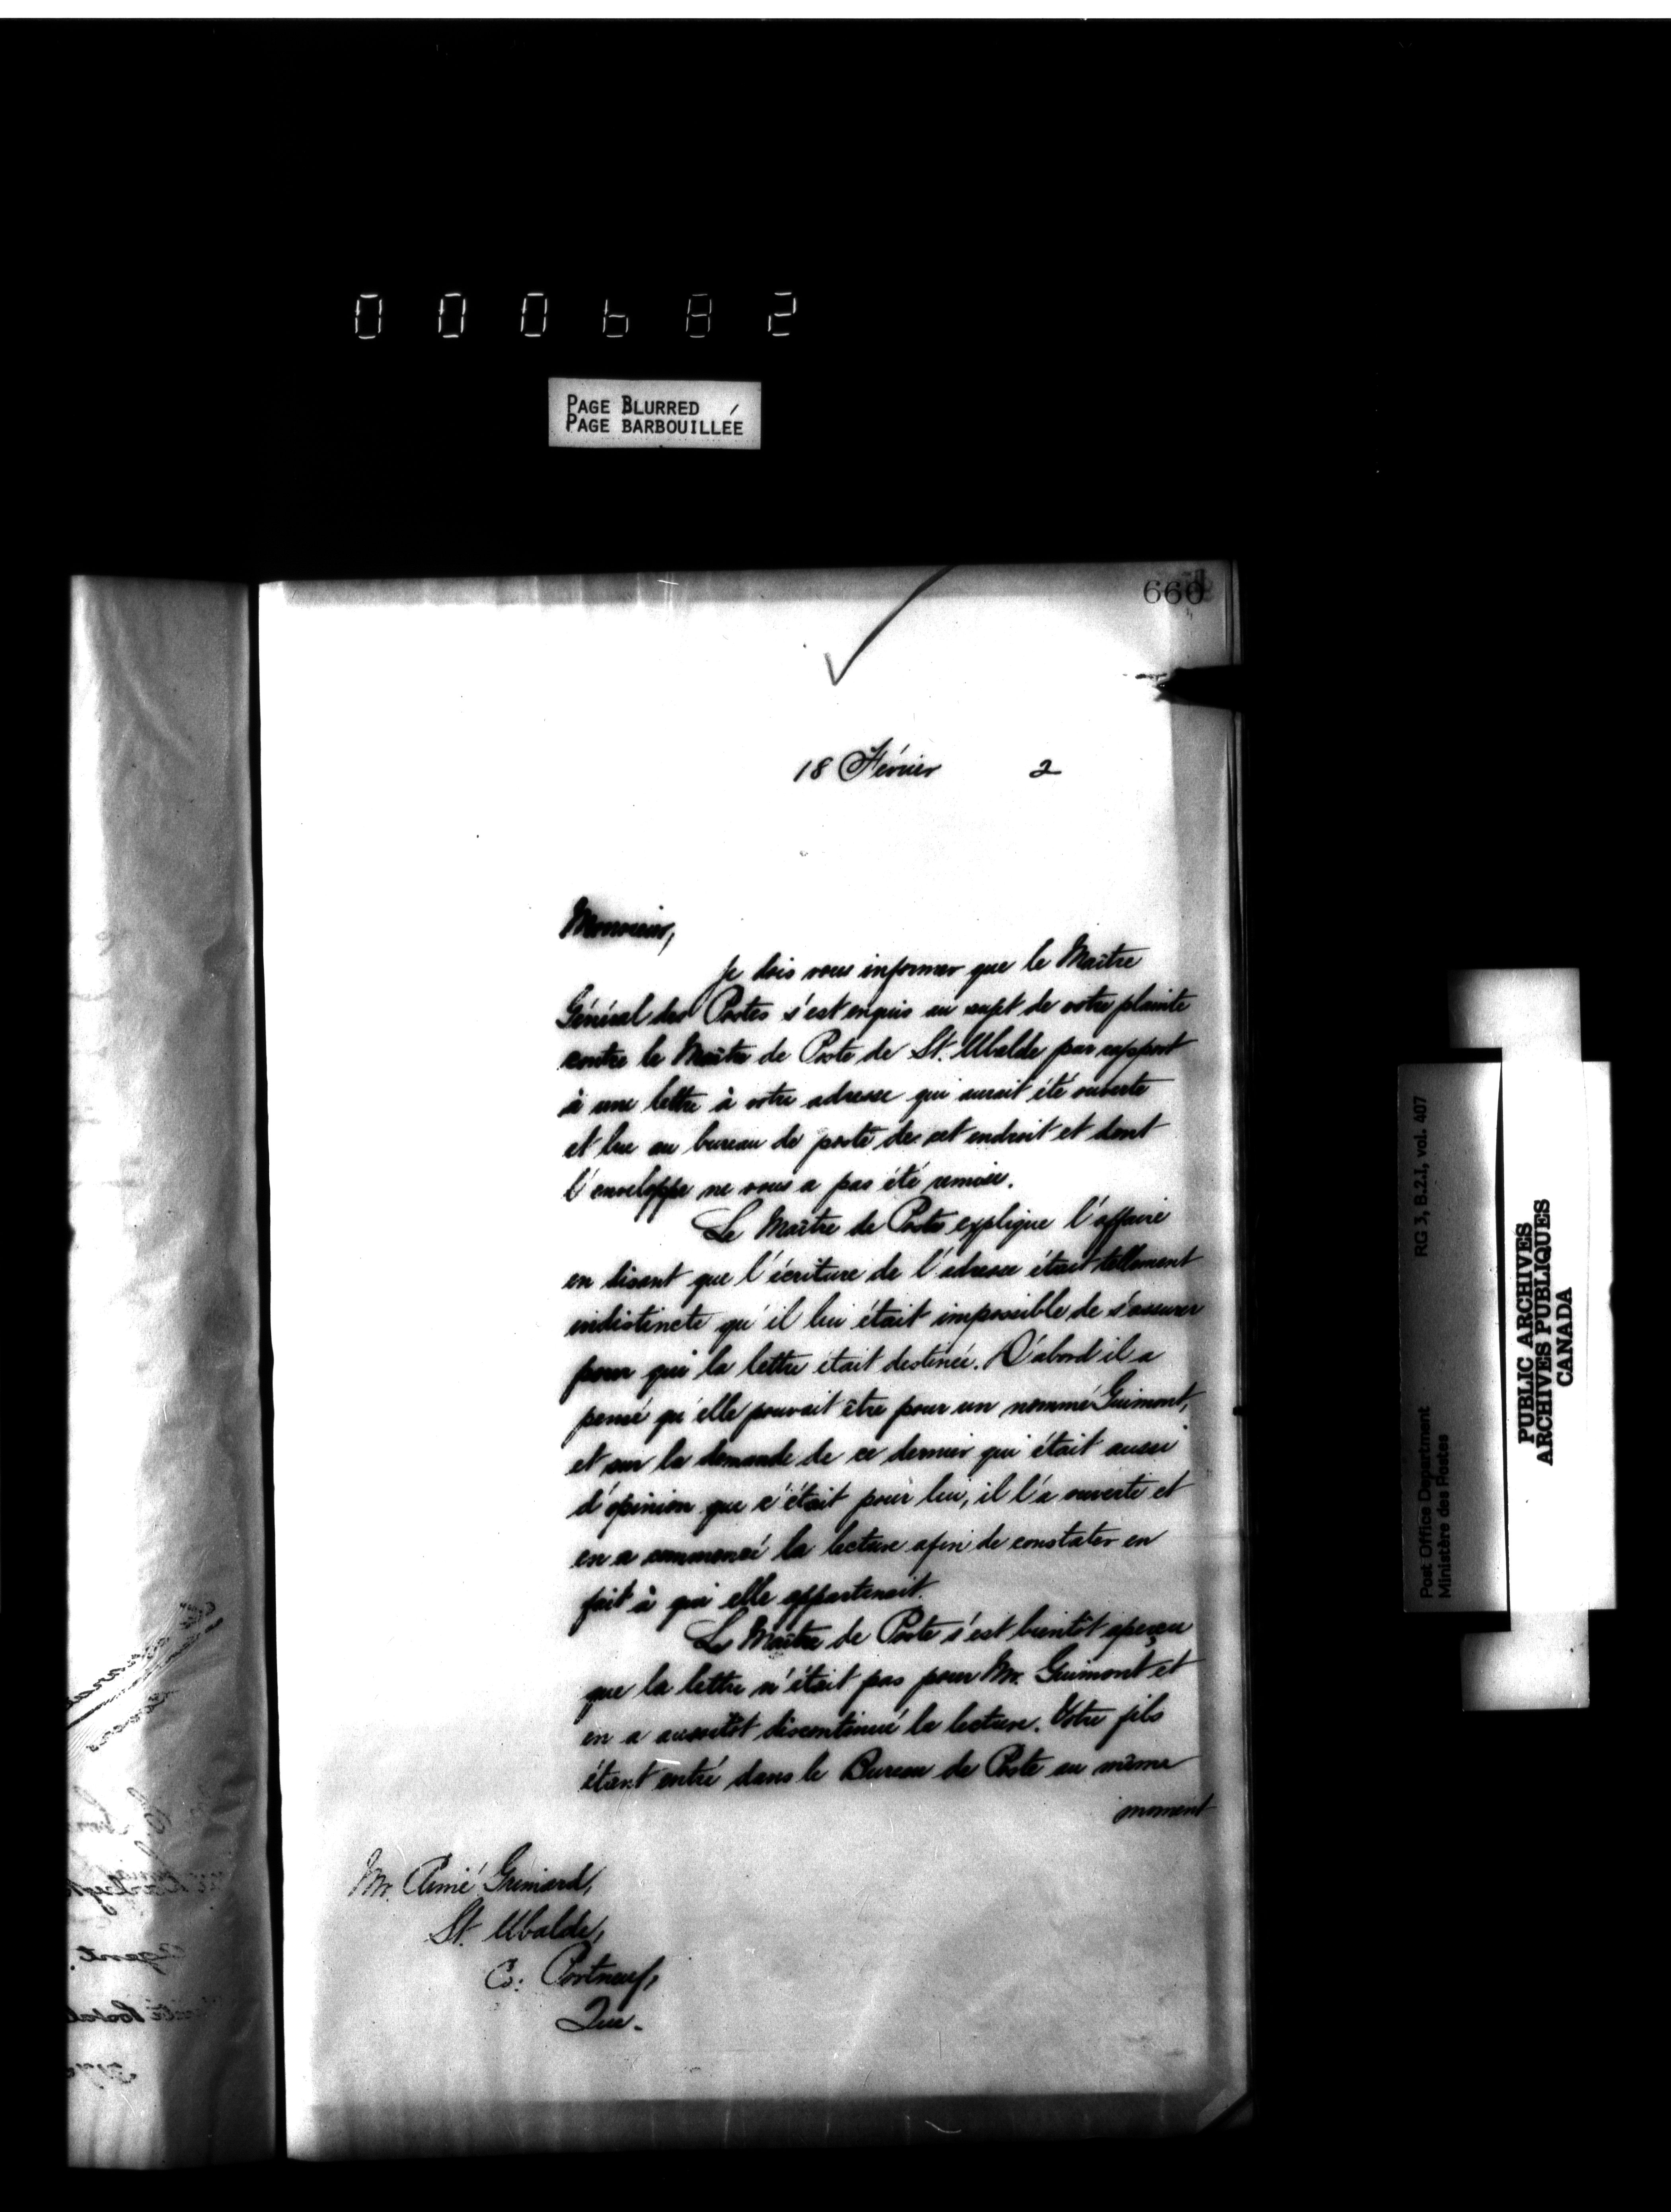 000682
PAGE BLURRED
PAGE BARBOUILLÉE
660
18 Février 2
Monsieur,
Je dois vous informer que le Maître
Général des Postes s'est enquis au sujet de votre plainte
contre le Maître de Poste de St. Ubalde par rapport
à une lettre à votre adresse qui aurait été ouverte
et lue au bureau de poste de cet endroit et dont
l'enveloppe ne vous a pas été remise.
Le Maître de Poste explique l'affaire
en disant que l'écriture de l'adresse était tellement
indistincte qu'il lui était impossible de s'assurer
pour qui la lettre était destinée. D'abord il a
pensé qu'elle pouvait être pour un nommé Guimont,
et sur la demande de ce dernier qui était aussi
d'opinion que c'était pour lui, il l'a ouverte et
en a commencé la lecture afin de constater en
fait à qui elle appartenait.
Le Maître de Poste s'est bientôt aperçu
que la lettre n'était pas pour Mr. Guimont et
en a aussitôt discontinué la lecture. Votre fils
étant entré dans le Bureau de Poste au même
moment
Mr. Aimé Grimard,
St. Ubalde,
Co. Portneuf,
Que.
Post Office Department RG 3, B.2.1, vol. 407
Ministère des Postes
PUBLIC ARCHIVES
ARCHIVES PUBLIQUES
CANADA